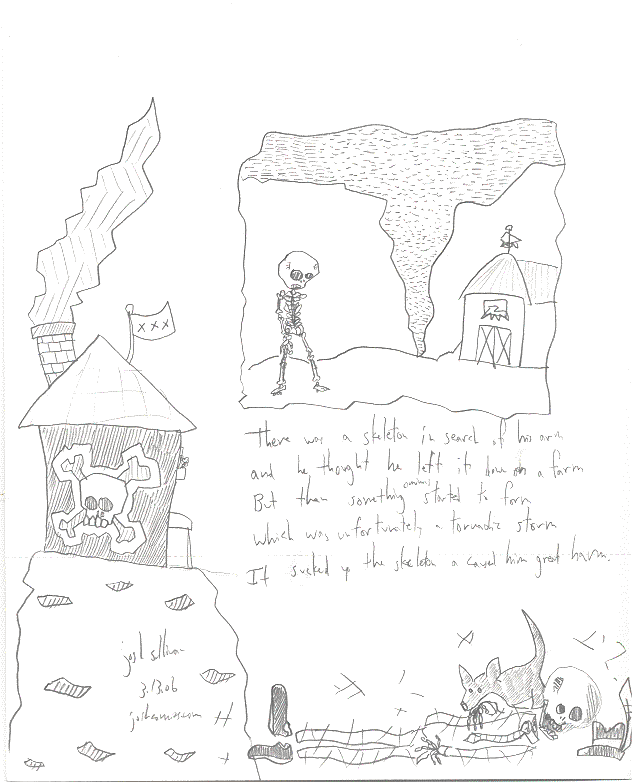 XXX
There was a skeleton in search of his arm
and he thought he left it down on a farm
But than something ominous started to form
which was unfortunately a tornadic storm
It sucked up the skeleton a caused him great harm.
josh sullivan
3.13.06